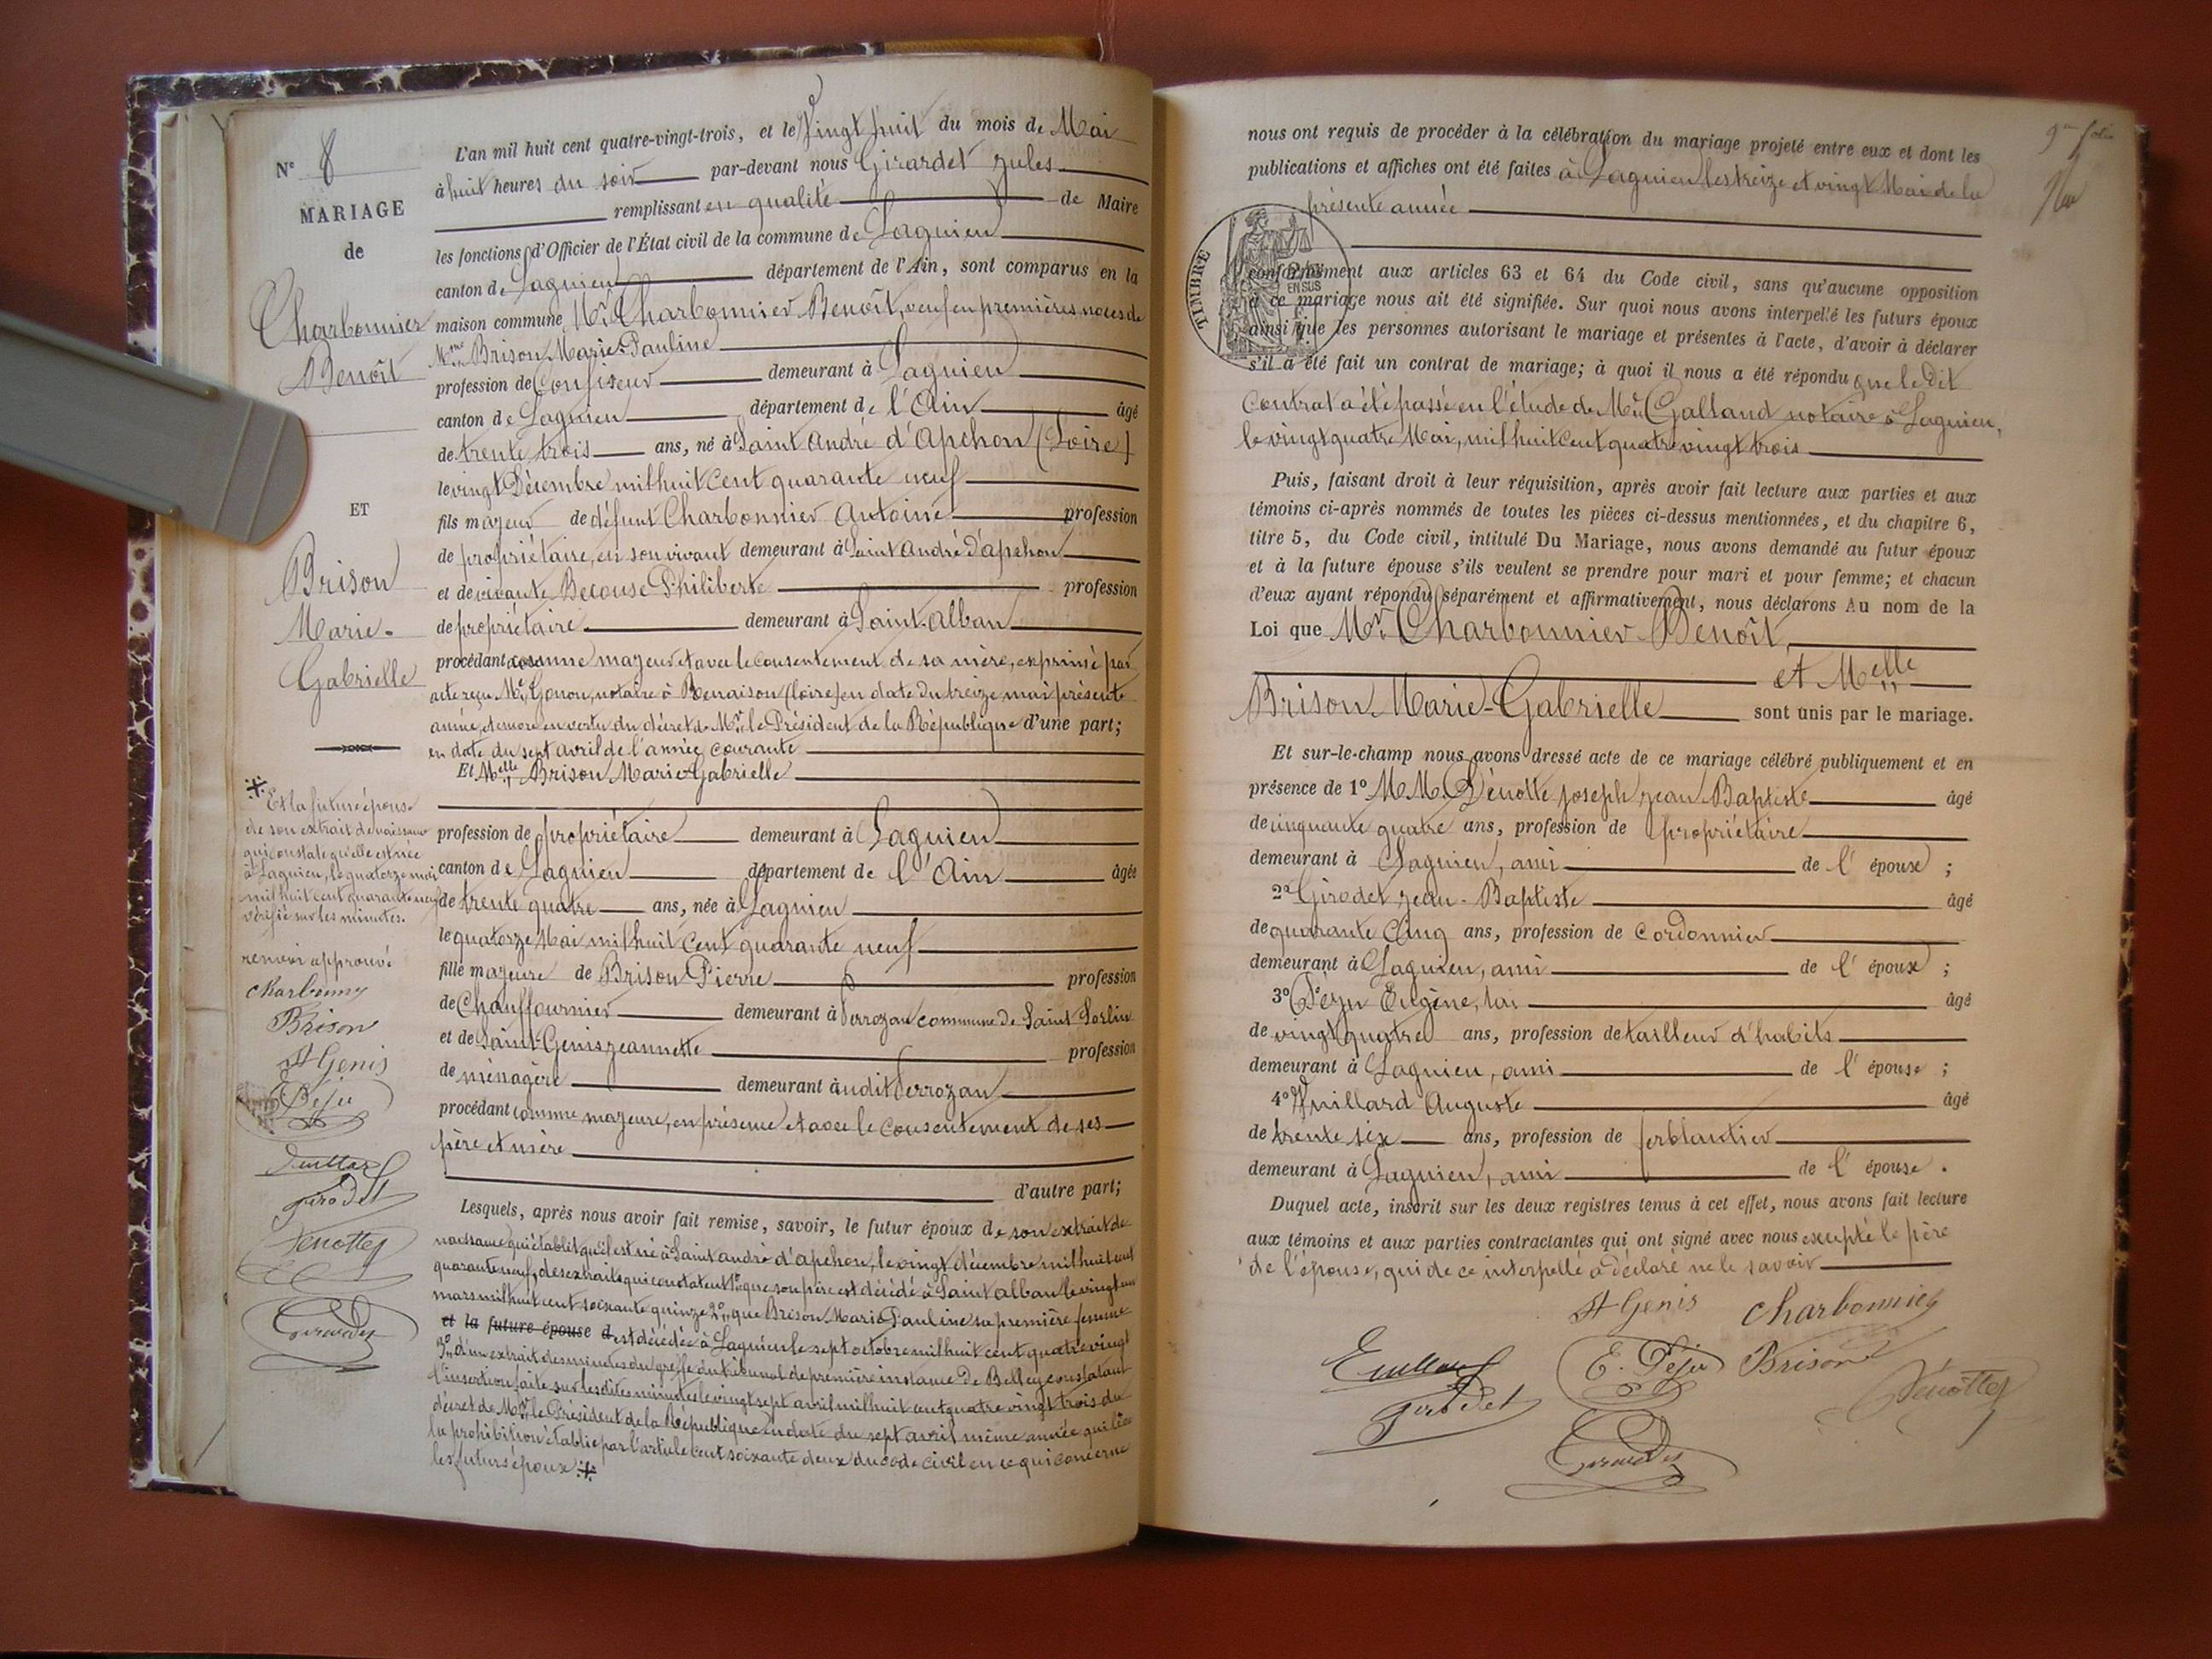 N° 8
MARIAGE
de
Charbonnier
Benoît
ET
Brison
Marie-
Gabrielle
⁜ Et la future épouse
de son extrait de naissance
qui constate qu'elle est née
à Lagnieu, le quatorze mai
mil huit cent quarante neuf
vérifié sur les minutes.
renvoi approuvé
Charbonnier
Brison
St Genis
Déju
Vuillard
Girodet
Denotte
L'an mil huit cent quatre-vingt-trois, et le Vingt huit du mois de Mai
à huit heures du soir par-devant nous Girardet Jules
remplissant en qualité de Maire
les fonctions d'Officier de l'État civil de la commune de Lagnieu
canton de Lagnieu département de l'Ain, sont comparus en la
maison commune Mr. Charbonnier Benoît, veuf en premières noces de
Mme Brison Marie-Pauline
profession de Confiseur demeurant à Lagnieu
canton de Lagnieu département de l'Ain âgé
de trente trois ans, né à Saint André d'Apchon (Loire)
le vingt Décembre mil huit cent quarante neuf
fils majeur de défunt Charbonnier Antoine profession
de propriétaire, en son vivant demeurant à Saint André d'apchon
et de vivante Becouse Philiberte profession
de propriétaire demeurant à Saint-Alban
procédant comme majeur et avec le consentement de sa mère, exprimé par
acte reçu Me. Gonon, notaire à Renaison (Loire) en date du treize mai présente
année, et encore en vertu du décret de Mr. le Président de la République d'une part;
en date du sept avril de l'année courante
Et Melle Brison Marie-Gabrielle
profession de propriétaire demeurant à Lagnieu
canton de Lagnieu département de l'Ain âgée
de trente quatre ans, née à Lagnieu
le quatorze Mai mil huit cent quarante neuf
fille majeure de Brison Pierre profession
de Chauffournier demeurant à Perrozan commune de Saint Sorlin
et de Saint-Genis Jeannette profession
de ménagère demeurant audit Perrozan
procédant comme majeure, en présence et avec le consentement de ses
père et mère
d'autre part;
Lesquels, après nous avoir fait remise, savoir, le futur époux de son extrait de
naissance qui établit qu'il est né à Saint andré d'apchon, le vingt décembre mil huit cent
quarante neuf, des extraits qui constatent 1° que son père est décédé à Saint alban le vingt
mars mil huit cent soixante quinze 2° que Brison Marie Pauline sa première femme
et la future épouse d est décédée à Lagnieu le sept octobre mil huit cent quatre vingt
3° d'un extrait des minutes du greffe du tribunal de première instance de Belley constatant
l'insertion faite sur lesdites minutes le vingt sept avril mil huit cent quatre vingt trois du
décret de Mr. le Président de la République en date du sept avril même année qui lève
la prohibition établie par l'article cent soixante deux du code civil en ce qui concerne
les futurs époux ⁜
9me folio
nous ont requis de procéder à la célébration du mariage projeté entre eux et dont les
publications et affiches ont été faites à Lagnieu les treize et vingt Mai de la
présente année
TIMBRE
EN SUS
conformément aux articles 63 et 64 du Code civil, sans qu'aucune opposition
à ce mariage nous ait été signifiée. Sur quoi nous avons interpellé les futurs époux
ainsi que les personnes autorisant le mariage et présentes à l'acte, d'avoir à déclarer
s'il a été fait un contrat de mariage; à quoi il nous a été répondu que le dit
Contrat a été passé en l'étude de Me. Galland notaire à Lagnieu,
le vingt quatre Mai, mil huit cent quatre vingt trois
Puis, faisant droit à leur réquisition, après avoir fait lecture aux parties et aux
témoins ci-après nommés de toutes les pièces ci-dessus mentionnées, et du chapitre 6,
titre 5, du Code civil, intitulé Du Mariage, nous avons demandé au futur époux
et à la future épouse s'ils veulent se prendre pour mari et pour femme; et chacun
d'eux ayant répondu séparément et affirmativement, nous déclarons Au nom de la
Loi que Mr. Charbonnier Benoît,
et Melle
Brison Marie-Gabrielle sont unis par le mariage.
Et sur-le-champ nous avons dressé acte de ce mariage célébré publiquement et en
présence de 1° M.M. Denotte Joseph Jean Baptiste âgé
de cinquante quatre ans, profession de propriétaire
demeurant à Lagnieu, ami de l'épouse ;
2° Girodet Jean-Baptiste âgé
de quarante cinq ans, profession de cordonnier
demeurant à Lagnieu, ami de l'époux ;
3° Déju Eugène, âgé
de vingt quatre ans, profession de tailleur d'habits
demeurant à Lagnieu, ami de l'épouse ;
4° Vuillard Auguste âgé
de trente six ans, profession de ferblantier
demeurant à Lagnieu, ami de l'épouse.
Duquel acte, inscrit sur les deux registres tenus à cet effet, nous avons fait lecture
aux témoins et aux parties contractantes qui ont signé avec nous excepté le père
de l'épouse, qui de ce interpellé a déclaré ne le savoir
St Genis Charbonnier
Vuillard E. Déju Brison
Girodet Denotte